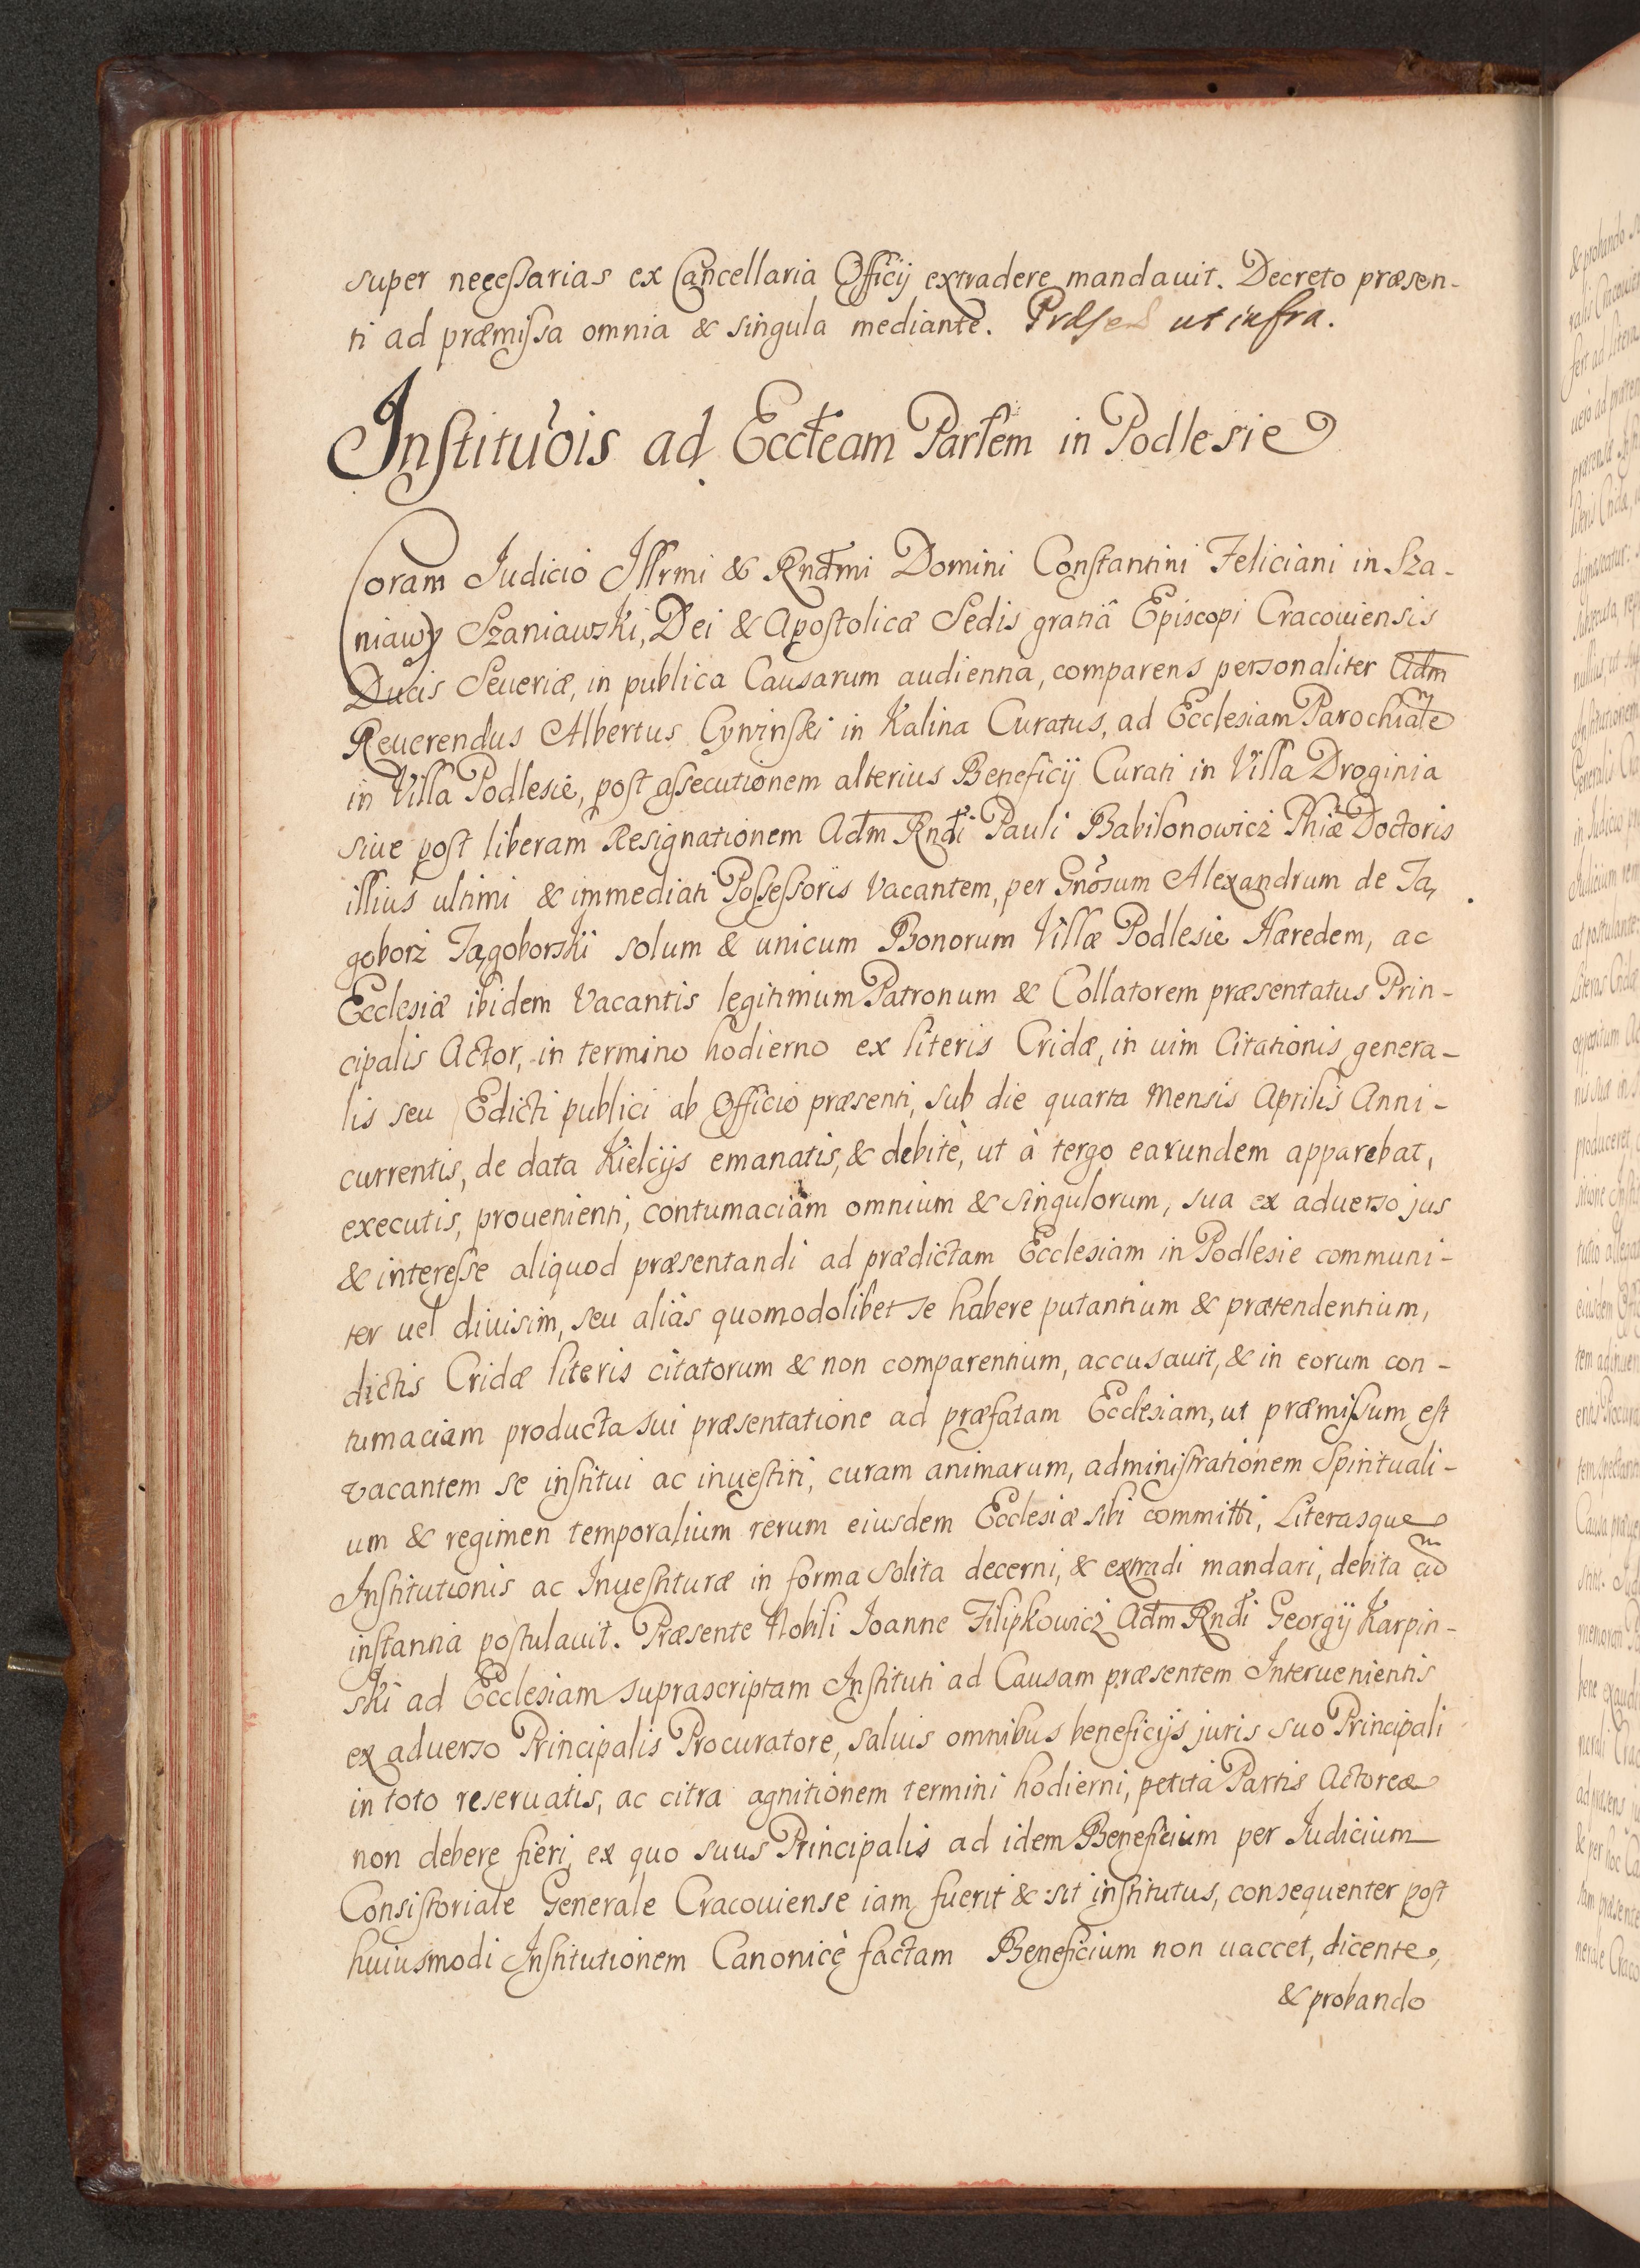 super necessarias ex Cancellaria Officij extradere mandauit. Decreto præsen-
ti ad præmissa omnia & singula mediante. Præsen ut infra.
Instituõis ad Eccłeam Parłem in Podlesie
Coram Judicio Illrmi & Rndmi Domini Constantini Feliciani in Sza-
niawy Szaniawski, Dei & Apostolicæ Sedis gratiâ Episcopi Cracouiensis
Ducis Seueriæ, in publica Causarum audientia, comparens personaliter Adm
Reuerendus Albertus Cywinski in Kalina Curatus, ad Ecclesiam Parochialem
in Villa Podlesie, post assecutionem alterius Beneficij Curati in Villa Droginia
siue post liberam Resignationem Adm Rndi Pauli Babilonowicz Phiæ Doctoris
illius ultimi & immediati Possessoris Vacantem, per Gnõsum Alexandrum de Ta,
goborz Tągoborski solum & unicum Bonorum Villæ Podlesie Hæredem, ac
Ecclesiæ ibidem Vacantis legitimum Patronum & Collatorem præsentatus Prin-
cipalis Actor, in termino hodierno ex literis Cridæ, in uim Citationis genera-
lis seu Edicti publici ab Officio præsenti, sub die quarta Mensis Aprilis Anni-
currentis, de data Kielcijs emanatis, & debitè, ut à tergo earundem apparebat,
executis, prouenienti, contumaciam omnium & singulorum, sua ex aduerso jus
& interesse aliquod præsentandi ad prædictam Ecclesiam in Podlesie communi-
ter uel diuisim, seu aliàs quomodolibet se habere putantium & prætendentium,
dictis Cridæ literis citatorum & non comparentium, accusauit, & in eorum con-
tumaciam producta sui præsentatione ad præfatam Ecclesiam, ut præmissum est
vacantem se institui ac inuestiri, curam animarum, administrationem Spirituali-
um & regimen temporalium rerum eiusdem Ecclesiæ sibi committi, Literasque
Institutionis ac Inuestituræ in forma solita decerni, & extradi mandari, debita cũ
instantia postulauit. Præsente Nobili Ioanne Filipkowicz Adm Rndi Georgij Karpin-
ski ad Ecclesiam suprascriptam Instituti ad Causam præsentem Interuenientis
ex aduerso Principalis Procuratore, saluis omnibus beneficijs juris suo Principali
in toto reseruatis, ac citra agnitionem termini hodierni, petita Partis Actoreæ
non debere fieri, ex quo suus Principalis ad idem Beneficium per Iudicium
Consistoriale Generale Cracouiense iam fuerit & sit institutus, consequenter post
huiusmodi Institutionem Canonicè factam Beneficium non uaccet, dicente,
& probando